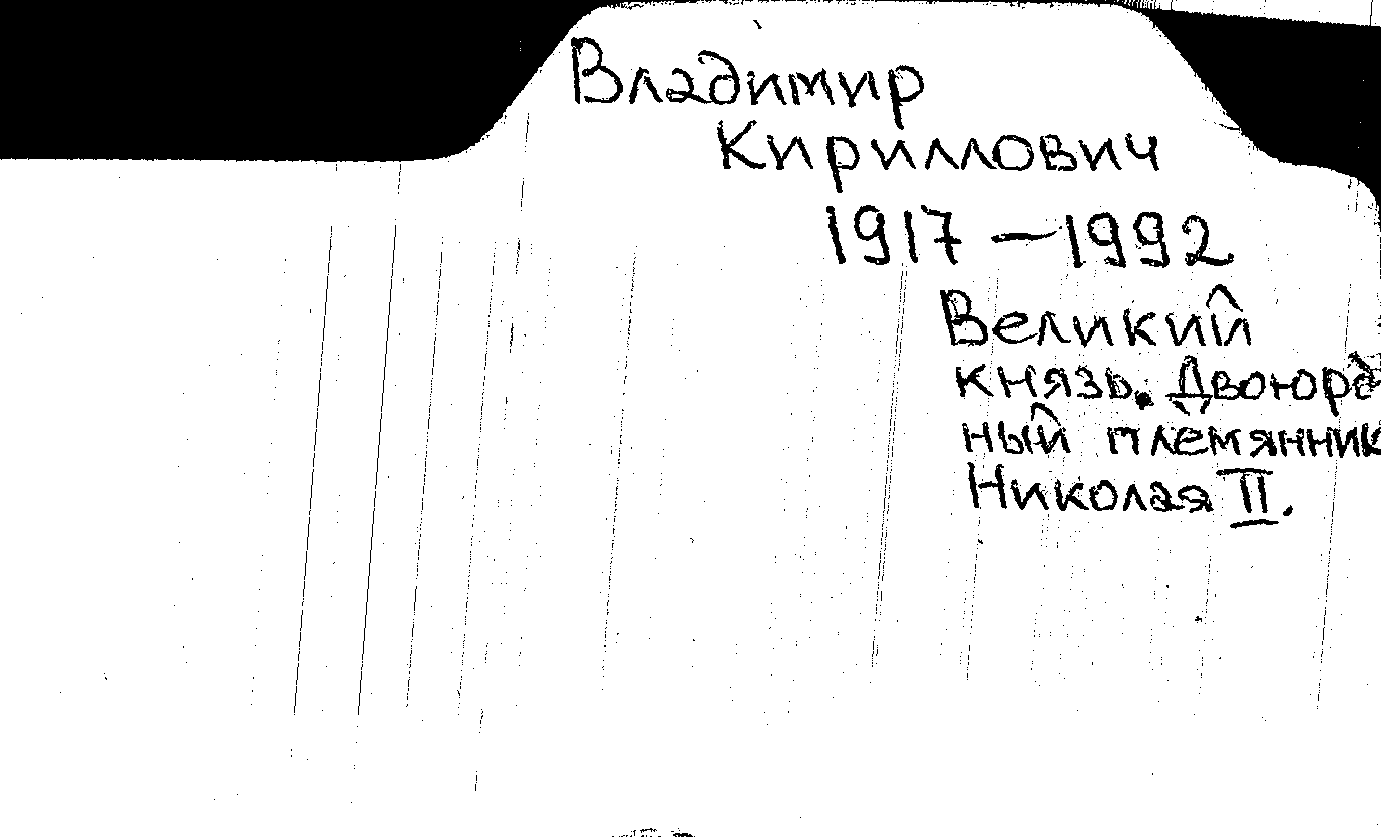 Владимир
Кириллович
1917 – 1992
Великий
князь. Двоюрд
ный племянник
Николая II.